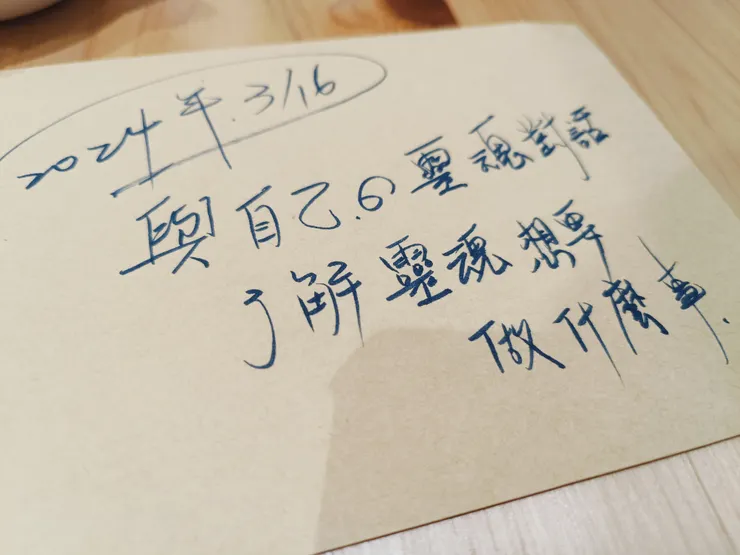 2024年.3/16
與自己.的靈魂對話
了解靈魂想要
做什麼事.